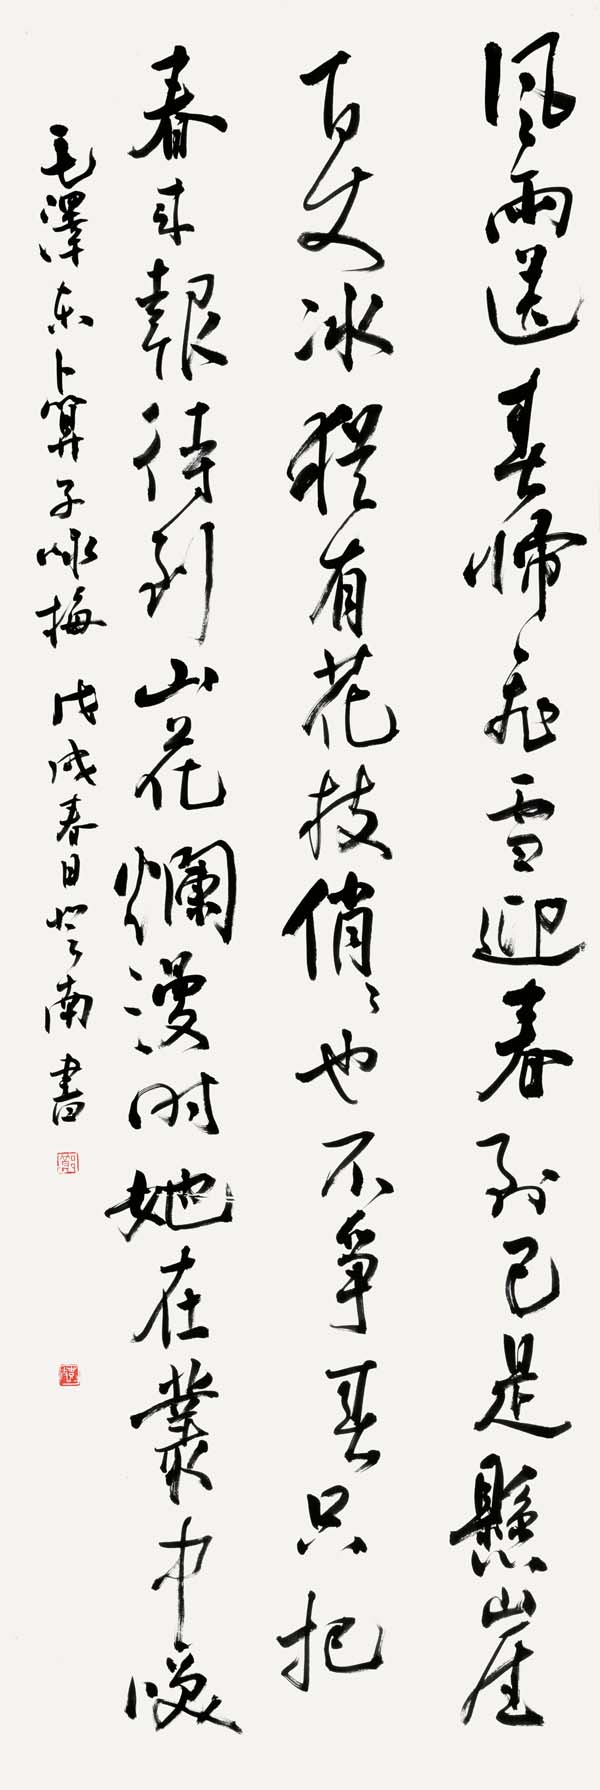 風雨送春歸飛雪迎春到已是懸崖
百丈冰猶有花枝俏〻也不爭春只把
春來報待到山花爛漫時她在叢中咲
毛澤東卜算子咏梅 戊戌春日南書